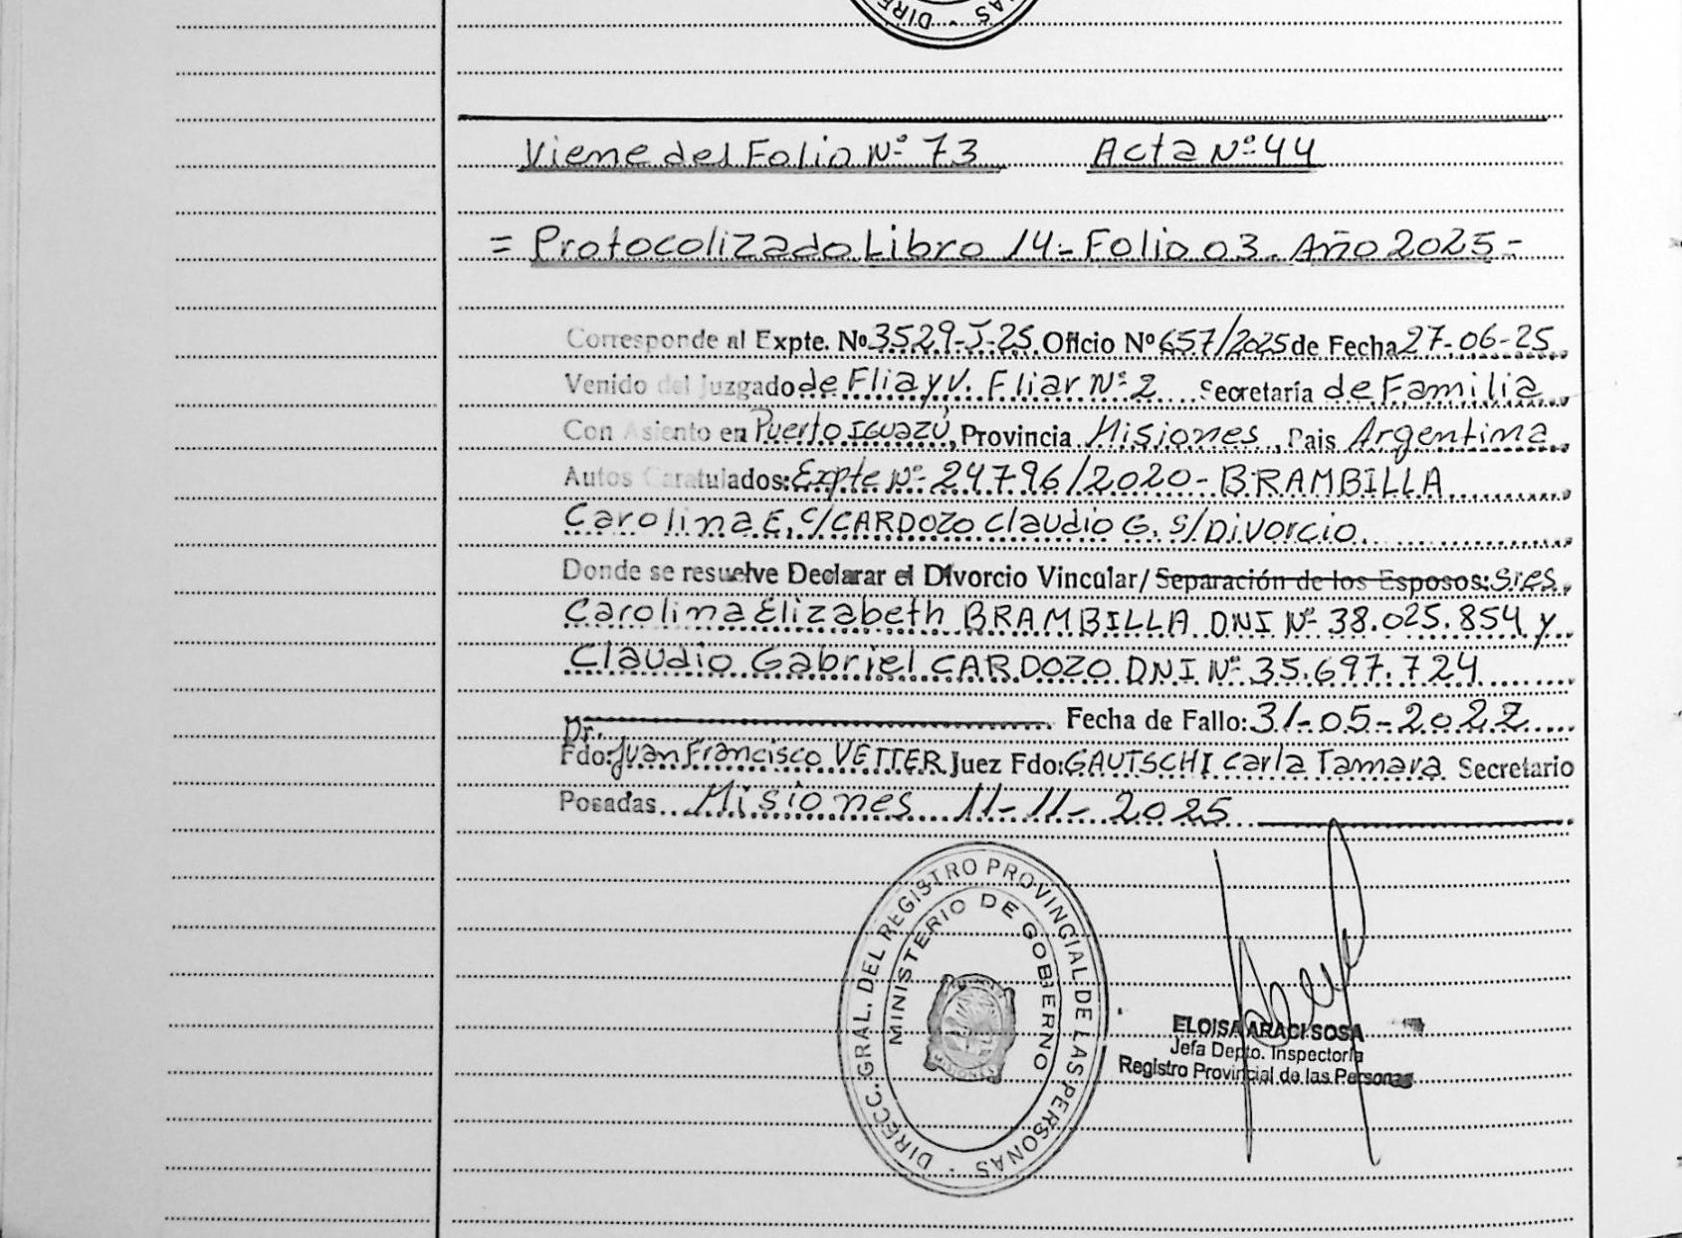 DIRE · AS
Viene del Folio Nº 73 Acta Nº 44
= Protocolizado Libro 14- Folio 03. Año 2025-
Corresponde al Expte. Nº 3529-J-25. Oficio Nº 657/2025 de Fecha 27-06-25
Venido del Juzgado de Flia y V. Fliar Nº 2 Secretaría de Familia
Con Asiento en Puerto Iguazú, Provincia Misiones, Pais Argentina
Autos Caratulados: Expte Nº 24796/2020- BRAMBILLA
Carolina E, C/CARDOZO Claudio G. S/Divorcio
Donde se resuelve Declarar el Divorcio Vincular/ Separación de los Esposos: Sres.
Carolina Elizabeth BRAMBILLA DNI Nº 38.025.854 y
Claudio Gabriel CARDOZO DNI Nº 35.697.724
Fecha de Fallo: 31-05-2022
Dr.
Fdo: Juan Francisco VETTER Juez Fdo: GAUTSCHI Carla Tamara Secretario
Posadas Misiones 11-11-2025
DIRECC. GRAL. DEL REGISTRO PROVINCIAL DE LAS PERSONAS ·
MINISTERIO DE GOBIERNO
MISIONES
ELOISA ARACI SOSA
Jefa Depto. Inspectoría
Registro Provincial de las Personas